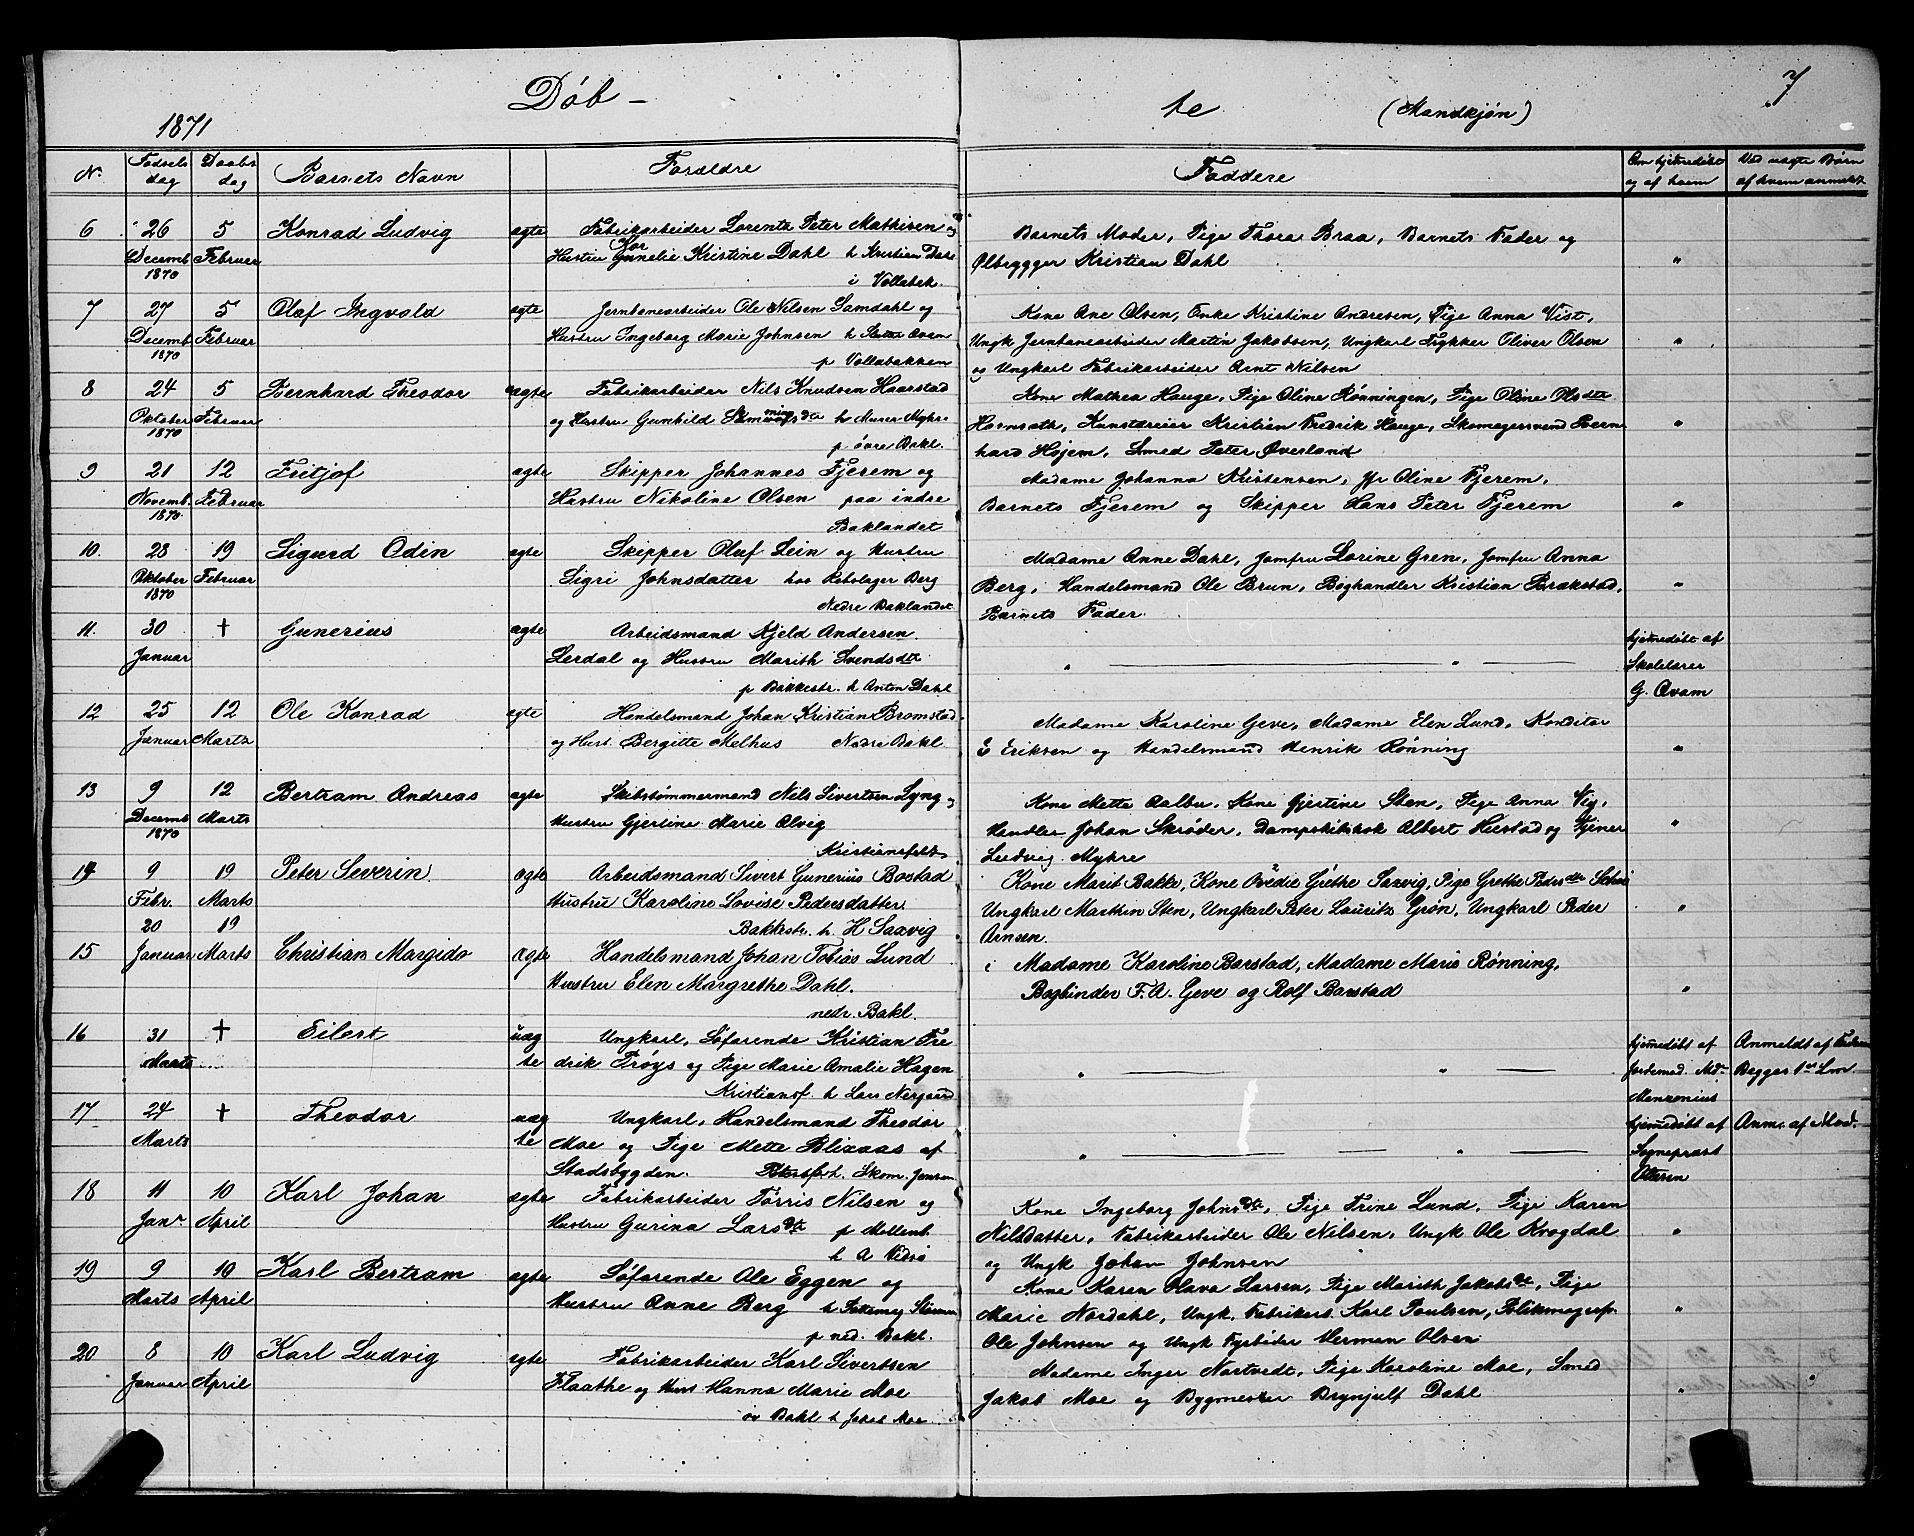 Döb - te (Mandkjøn) 7
1871
N. Fødselsdag Daabsdag Barnets Navn Forældre Faddere Om hjemedøbt og af hvem Ved uægte Børn af hvem anmeldt
6 26 5 Konrad Ludvig ægte Fabrikarbeider Lorents Peter Mathisen og Barnets Moder, Pige Thora Braa, Barnets Fader og
Decemb. Februar Hustru Kornelie Kristine Dahl h Kristian Dahl Ølbrygger Kristian Dahl "
1870 i Vollabak.
7 27 5 Olaf Ingvald ægte Jernbanearbeider Ole Nilsen Samdahl og Kone Ane Olsen, Enke Kristine Andresen, Pige Anna Vist,
Decemb. Februar Hustru Ingeborg Marie Johnsen h Oven Ungk Jernbanearbeider Martin Jakobsen, Ungkarl Trykker Oliver Olsen "
1870 p Vollabakken og Ungkarl Fabrikarbeider Arnt Nilsen
8 24 5 Bernhard Theodor ægte Fabrikarbeider Nils Knudsen Haarstad Kone Mathea Hauge, Pige Oline Rønningen, Pige Oline Olsdtr
Oktober Februar og Hustru Gunhild dtr h Murer Myhr Kunstdreier Kristian Fredrik Hauge, Skomagersvend Bern "
1870 p övre Bakl. hard Hojem, Smed Peter Øverland
9 21 12 Fritjof ægte Skipper Johannes Fjerem og Madame Johanna Kristensen, Jfr Oline Fjerem,
Novemb. Februar Hustru Nikoline Olsen paa indre Barnets Fjerem og Skipper Hans Peter Fjerem "
1870 Baklandet
10. 28 19 Sigurd Odin ægte Skipper Oluf Lein og Hustru Madame Anne Dahl, Jomfru Lorine Gren, Jomfru Anna
Oktober Februar Sigri Johnsdatter hos Rebslager Berg Berg, Handelsmand Ole Brun, Boghandler Kristian Brækstad, "
1870 Nedre Baklandet Barnets Fader
11. 30 † Gunerius ægte Arbeidsmand Kjeld Andersen hjemedøbt af
Januar Lerdal og Hustru Marith Svendsdtr " — " — Skolelærer
p Bakkestr. h Anton Dahl G. Qvam
12 25 12 Ole Konrad ægte Handelsmand Johan Kristian Bromstad Madame Karoline Geve, Madame Elen Lund, Konditor
Januar Marts og Hust. Bergitte Melhus Nedre Bakl E Eriksen og Handelsmand Henrik Rønning "
13 9 12 Bertram Andreas ægte Skibstømmermand Nils Sivertsen Lyng og Kone Mette Aalbu, Kone Gjertine Sten, Pige Anna Vig,
Decemb Marts Hustru Gjertine Marie Alvig Handler Johan Skrøder, Dampskibskok Albert Hustad og Tjener "
1870 Kristiansfeldt Ludvig Myhre
14 9 19 Peter Severin. ægte Arbeidsmand Sivert Gunerius Bostad Kone Marit Bakke, Kone Ovedie Grethe Saxvig, Pige Grethe Pedersdtr
Febr. Marts Hustru Karoline Lovise Pedersdatter. Ungkarl Marthin Sten, Ungkarl Peter Lauritz Grøn, Ungkarl Peder "
20 19 Bakkestr. h. H Saxvig Arnsen.
15 Januar Marts Christian Margido ægte Handelsmand Johan Tobias Lund i Madame Karoline Barstad, Madame Marie Rønning,
Hustru Elen Margrethe Dahl. Bogbinder F. A. Geve og Rolf Barstad "
nedr. Bakl.
16 31 † Eilert uæg Ungkarl, Søfarende Kristian Fre hjemedøbt af Anmeldt af Faderen
Marts te drik Frøys og Pige Marie Amalie Hagen " " — Jordemod. Md. Begges 1ste Lm.
Kristiansf. h Lars Nergaard Menzonius
17 24 † Theodor uæg Ungkarl, Handelsmand Theodor hjemedøbt af Anm. af Mod.
Marts te Moe og Pige Mette Blixaas af " — " — Sogneprest
Stadsbygden. h. Skom. Jensen
18 11 10 Karl Johan ægte Fabrikarbeider Torris Nilsen og Kone Ingeborg Johnsdtr, Pige Trine Lund, Pige Karen
Janr April Hustru Gurina Larsdtr p Mollenb. Nilsdatter, Fabrikarbeider Ole Nilsen, Ungk Ole Krogdal "
h A Vedsø og Ungk Johan Johnsen
19 9 10 Karl Bertram ægte Söfarende Ole Eggen og Kone Karen Olava Larsen, Pige Marith Jakobsdtr, Pige
Marts April Hustru Anne Berg h Marie Nordahl, Ungk. Fabrikarb. Karl Paulsen, Blikmagersv. "
p ned. Bakl. Ole Johnsen og Ungk Fyrbøder Herman Olsen
20 8 10 Karl Ludvig ægte Fabrikarbeider Karl Sivertsen Madame Inger Nortvedt, Pige Karoline Moe, Smed
Januar April Flaathe og Hust Hanna Marie Moe Jakob Moe og Bygmester Brynjulf Dahl "
öv Bakl h Jakob Moe